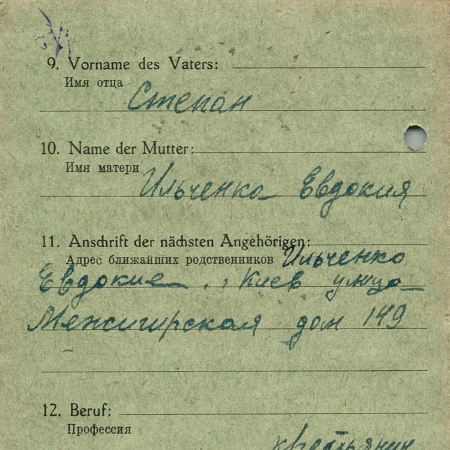 9. Vorname des Vaters:
Имя отца
Степан
10. Name der Mutter:
Имя матери
Ильченко Евдокия
11. Anschrift der nächsten Angehörigen:
Адрес ближайших родственников Ильченко
Евдокие . г Киев улица
Менсигирская дом 149
12. Beruf:
Профессия
крестьянин